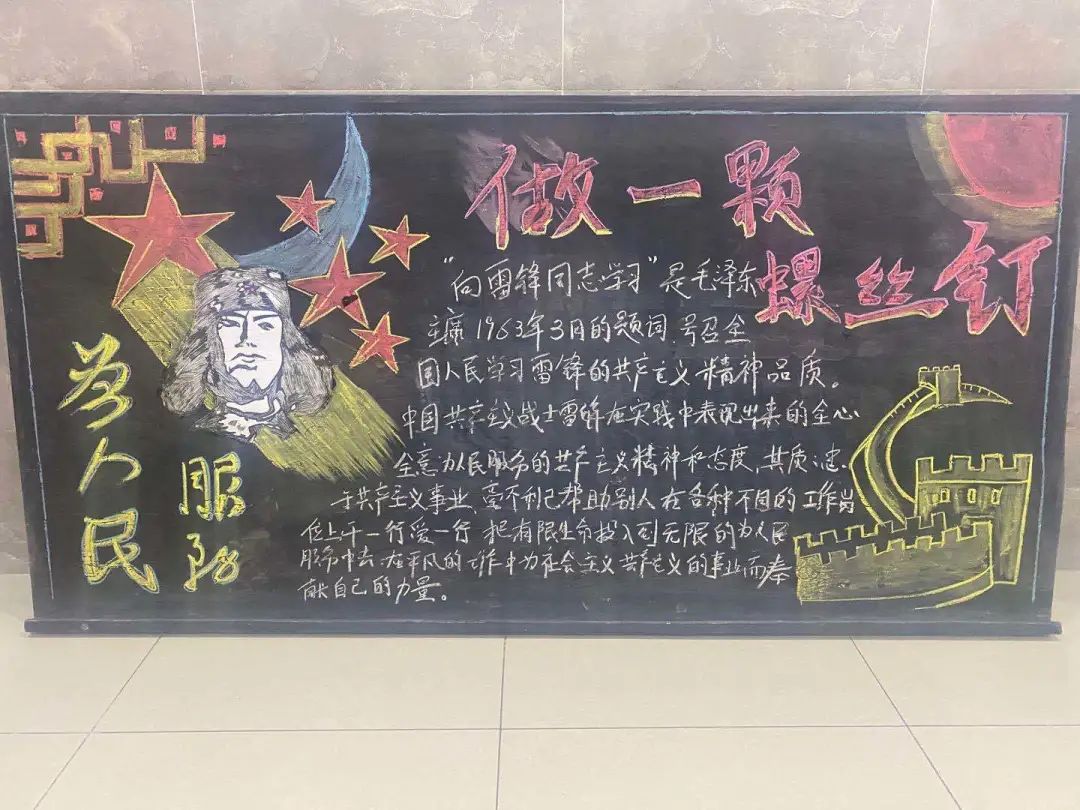 做一颗
螺丝钉
"向雷锋同志学习"是毛泽东
主席1963年3月的题词,号召全
国人民学习雷锋的共产主义精神品质。
中国共产主义战士雷锋在实践中表现出来的全心
全意为人民服务的共产主义精神和态度,其质忠
于共产主义事业、毫不利己帮助别人在各种不同的工作岗
位上干一行爱一行 把有限生命投入到无限的为人民
服务中去,在平凡的工作中为社会主义共产主义的事业而奉
献自己的力量。
为人民
服务